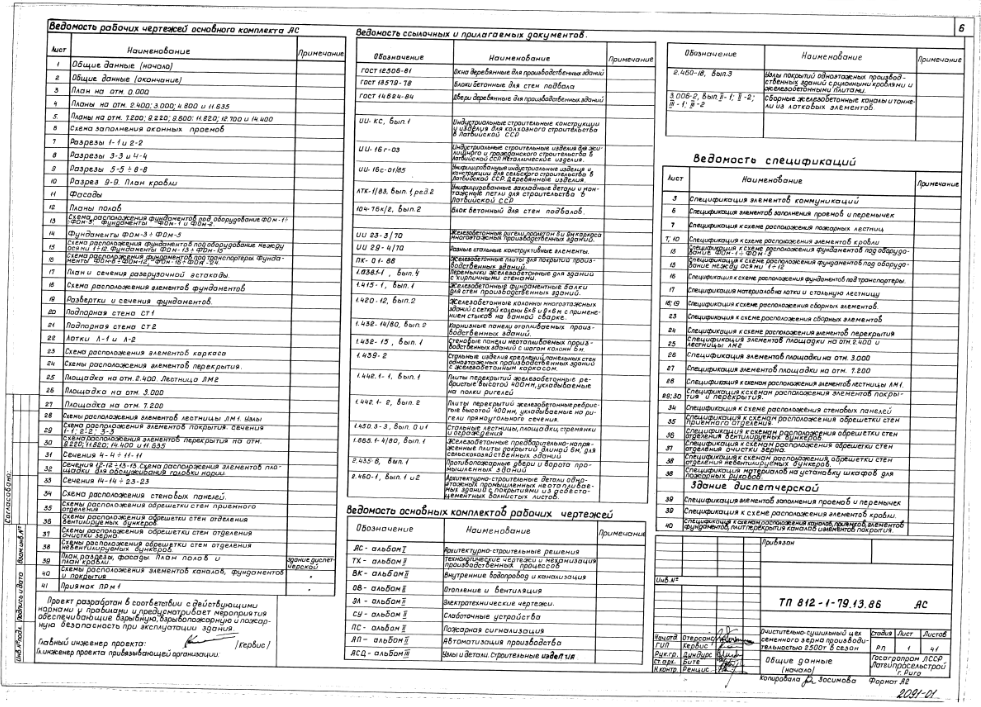 6
Ведомость рабочих чертежей основного комплекта АС
Лист Наименование Примечание
1 Общие данные (начало)
2 Общие данные (окончание)
3 План на отм. 0.000
4 Планы на отм. 2.400; 3.000; 4.800 и 11.635
5 Планы на отм. 7.200; 8.220; 9.600; 11.820; 12.700 и 14.400
6 Схема заполнения оконных проемов
7 Разрезы 1-1 и 2-2
8 Разрезы 3-3 и 4-4
9 Разрезы 5-5 ÷ 8-8
10 Разрез 9-9. План кровли
11 Фасады
12 Планы полов
13 Схема расположения фундаментов под оборудование ФОм-1÷
ФОм-3. Фундаменты ФОм-1 и ФОм-2
14 Фундаменты ФОм-3 ÷ ФОм-5
15 Схема расположения фундаментов под оборудование между
осями 1÷12. Фундаменты ФОм-13 ÷ ФОм-15
16 Схема расположения фундаментов под транспортеры. Фунда-
17 План и сечения разгрузочной эстакады.
18 Схема расположения элементов фундаментов
19 Развертки и сечения фундаментов.
20 Подпорная стена СТ1
21 Подпорная стена СТ2
22 Лотки Л-1 и Л-2
23 Схема расположения элементов каркаса
24 Схемы расположения элементов перекрытия.
25 Площадка на отм. 2.400. Лестница ЛМ2
26 Площадка на отм. 3.000
27 Площадка на отм. 7.200
28 Схемы расположения элементов лестницы ЛМ1. Узлы
29 Схема расположения элементов покрытия. Сечения
1-1; 2-2; 3-3
30 Схема расположения элементов перекрытия на отм.
8.220; 11.820; 14.400 и 11.635
31 Сечения 4-4 ÷ 11-11
32 Сечения 12-12÷13-13 Схема расположения элементов пло-
щадки для обслуживания головки нории.
33 Сечения 14-14 ÷ 23-23
34 Схема расположения стеновых панелей.
35 Схемы расположения обрешетки стен приемного
отделения
36 Схемы расположения обрешетки стен отделения
вентилируемых бункеров
37 Схемы расположения обрешетки стен отделения
очистки зерна.
38 Схемы расположения обрешетки стен отделения
невентилируемых бункеров.
39 План, разрезы, фасады. План полов и
план кровли здание диспет-
черской
40 Схемы расположения элементов каналов, фундаментов
и покрытия "
41 Приямок ПРм1 "
Проект разработан в соответствии с действующими
нормами и правилами и предусматривает мероприятия
обеспечивающие взрывную, взрывопожарную и пожар-
ную безопасность при эксплуатации здания
Главный инженер проекта: /Кервис/
Гл. инженер проекта привязывающей организации.
Согласовано:
Инв.№ подл. Подпись и дата Взам.инв.№
Ведомость ссылочных и прилагаемых документов.
Обозначение Наименование Примечание
ГОСТ 12506-81 Окна деревянные для производственных зданий
ГОСТ 13579-78 Блоки бетонные для стен подвала
ГОСТ 14624-84 Двери деревянные для производственных зданий
ИИ-КС, вып.1 Индустриальные строительные конструкции
и изделия для колхозного строительства
в Латвийской ССР
ИИ-16г-03 Индустриальные строительные изделия для жи-
лищного и гражданского строительства в
Латвийской ССР. Металлические изделия.
ИИ-16с-01/85 Унифицированные индустриальные изделия и
конструкции для сельского строительства в
Латвийской ССР. Деревянные изделия.
ЛТК-1/83, вып.1, ред.2 Унифицированные закладные детали и мон-
тажные петли для строительства в
Латвийской ССР
104-ТБК/2, вып.2 Блок бетонный для стен подвалов.
ИИ 23-3/70 Железобетонные ригели пролетом 6 и 9м каркаса
многоэтажных производственных зданий.
ИИ 29-4/70 Разные стальные конструктивные элементы.
ПК-01-88 Железобетонные плиты для покрытий произ-
водственных зданий.
1.038.1-1, вып.4 Перемычки железобетонные для зданий
с кирпичными стенами.
1.415-1, вып.1 Железобетонные фундаментные балки
для стен производственных зданий.
1.420-12, вып.2 Железобетонные колонны многоэтажных
зданий с сеткой колонн 6х6 и 9х6м с примене-
нием стыков на ванной сварке.
1.432-14/80, вып.2 Карнизные панели отапливаемых произ-
водственных зданий.
1.432-15, вып.1 Стеновые панели неотапливаемых произ-
водственных зданий с шагом колонн 6м.
1.439-2 Стальные изделия креплений панельных стен
одноэтажных производственных зданий
с железобетонным каркасом.
1.442.1-1, вып.1 Плиты перекрытий железобетонные ре-
бристые высотой 400мм, укладываемые
на полки ригелей
1.442.1-2, вып.2 Плиты перекрытий железобетонные ребрис-
тые высотой 400мм, укладываемые на ри-
гели прямоугольного сечения.
1.450.3-3, вып. 0 и 1 Стальные лестницы, площадки, стремянки
и ограждения
1.865.1-4/80, вып.1 Железобетонные предварительно-напря-
женные плиты покрытий длиной 6м, для
сельскохозяйственных зданий
2.435-6, вып.1 Противопожарные двери и ворота про-
мышленных зданий
2.460-1, вып.1 и 2 Архитектурно-строительные детали одно-
этажных промышленных неотапливае-
мых зданий с покрытиями из асбесто-
цементных волнистых листов.
Ведомость основных комплектов рабочих чертежей
Обозначение Наименование Примечание
АС - альбом I Архитектурно-строительные решения
ТХ - альбом II Технологические чертежи и механизация
производственных процессов
ВК - альбом II Внутренние водопровод и канализация
ОВ - альбом II Отопление и вентиляция
ЭЛ - альбом II Электротехнические чертежи.
СУ - альбом II Слаботочные устройства
ПС - альбом II Пожарная сигнализация
АП - альбом II Автоматизация производства
АСД - альбом II Узлы и детали. Строительные изделия
Обозначение Наименование Примечание
2.460-18, вып.3 Узлы покрытий одноэтажных производ-
ственных зданий с рулонными кровлями и
железобетонными плитами.
3.006-2, вып. II-1; II-2;
III-1; III-2 Сборные железобетонные каналы и тонне-
ли из лотковых элементов.
Ведомость спецификаций
Лист Наименование Примечание
3 Спецификация элементов коммуникаций
6 Спецификация элементов заполнения проемов и перемычек
7 Спецификация к схеме расположения пожарных лестниц
7; 10 Спецификация к схеме расположения элементов кровли
13 Спецификация к схеме расположения фундаментов под оборудо-
вание ФОм-1 ÷ ФОм-3
15 Спецификация к схеме расположения фундаментов под оборудо-
вание между осями 1÷12
16 Спецификация к схеме расположения фундаментов под транспортеры.
17 Спецификация материалов на лотки и стальную лестницу
18; 19 Спецификация к схеме расположения сборных элементов.
23 Спецификация к схеме расположения сборных элементов
24 Спецификация к схеме расположения элементов перекрытия
25 Спецификация элементов площадки на отм. 2.400 и
лестницы ЛМ2
26 Спецификация элементов площадки на отм. 3.000
27 Спецификация элементов площадки на отм. 7.200
28 Спецификация к схемам расположения элементов лестницы ЛМ1.
29; 30 Спецификация к схемам расположения элементов покры-
тия и перекрытия.
34 Спецификация к схеме расположения стеновых панелей
35 Спецификация к схемам расположения обрешетки стен
приемного отделения.
36 Спецификация к схемам расположения обрешетки стен
отделения вентилируемых бункеров.
37 Спецификация к схемам расположения обрешетки стен
отделения очистки зерна.
38 Спецификация к схемам расположения обрешетки стен
отделения невентилируемых бункеров.
38 Спецификация материалов на установку шкафов для
пожарных рукавов.
Здание диспетчерской
39 Спецификация элементов заполнения проемов и перемычек
39 Спецификация к схеме расположения элементов кровли.
40 Спецификация к схемам расположения каналов, приямков, элементов
фундаментов, плит перекрытия каналов и элементов покрытия.
Привязан
Инв.№
ТП 812-1-79.13.86 АС
Очистительно-сушильный цех
семенного зерна производи-
тельностью 2500т в сезон
Стадия Лист Листов
РП 1 41
ГИП Кервис
Рук.гр. Дундурс
Ст.арх. Бите
Н.контр. Ренцис
Общие данные
(начало)
Госагропром ЛССР
Латгипросельстрой
г. Рига
Копировала Зосимова Формат А2
2091-01